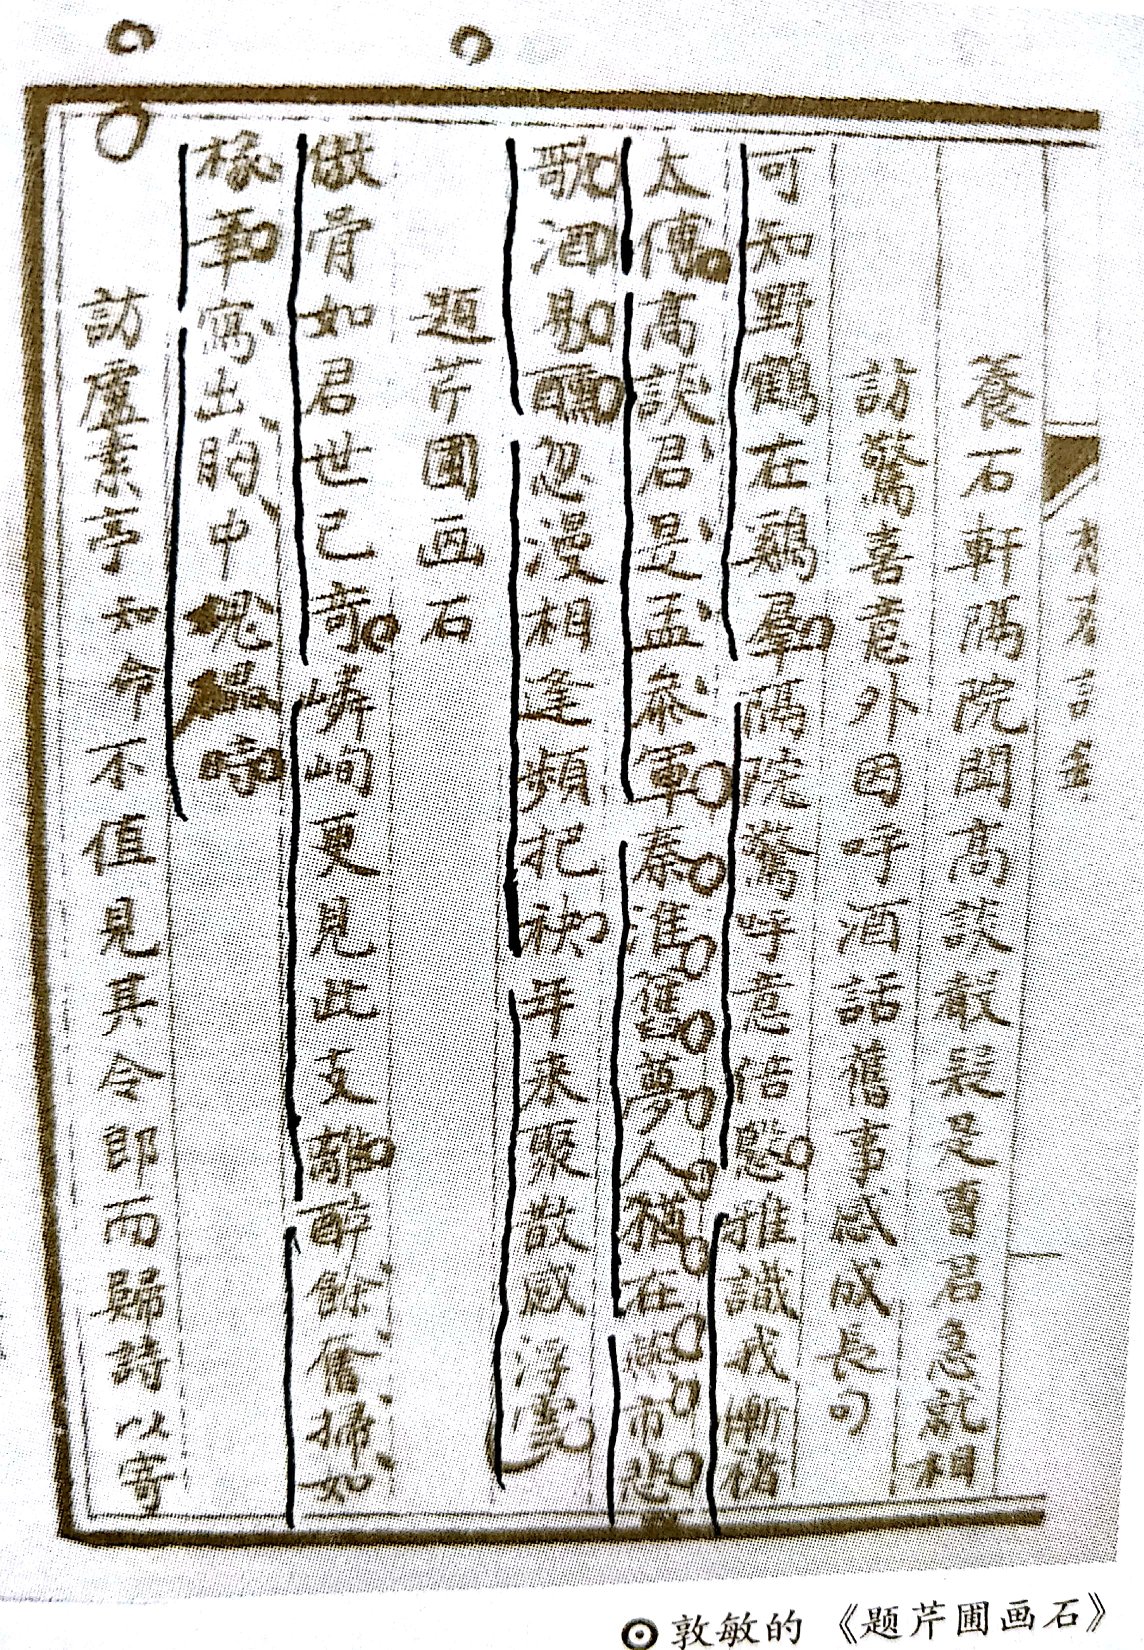 養石軒隔院聞高談聲疑是曹君急就相
訪驚喜意外因呼酒話舊事感成長句
可知野鶴在鷄羣隔院驚呼意倍慇雅識我慚褚
太傅高談君是孟叅軍秦淮舊夢人猶在燕市悲
歌酒易醺忽漫相逢頻把袂年來聚散感浮雲
題芹圃画石
傲骨如君世已奇嶙峋更見此支離醉餘奮掃如
椽筆寫出胸中磈礧時
訪盧素亭知命不值見其令郎而歸詩以寄
敦敏的《题芹圃画石》